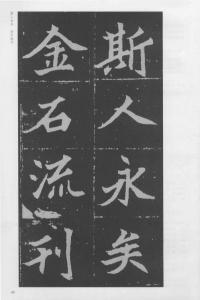 斯人永矣
金石流刊